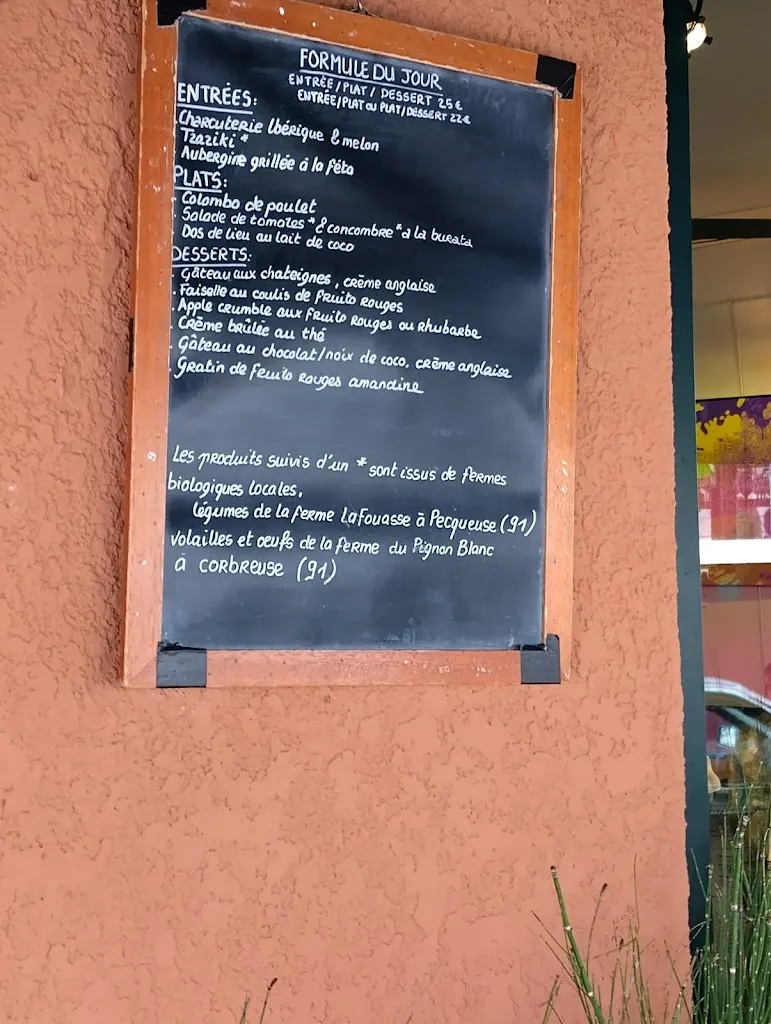 FORMULE DU JOUR
ENTRÉE/PLAT/DESSERT 25€
ENTRÉE/PLAT OU PLAT/DESSERT 22€
ENTRÉES:
. Charcuterie Ibérique & melon
. Tzaziki *
. Aubergine grillée à la féta
PLATS:
. Colombo de poulet
. Salade de tomates * & concombre * à la burata
. Dos de lieu au lait de coco
DESSERTS:
. Gâteau aux chateignes, crème anglaise
. Faiselle au coulis de fruits rouges
. Apple crumble aux fruits rouges ou rhubarbe
. Crème brûlée au thé
. Gâteau au chocolat/noix de coco, crème anglaise
. Gratin de fruits rouges amandine
Les produits suivis d'un * sont issus de fermes
biologiques locales.
légumes de la ferme Lafouasse à Pecqueuse (91)
volailles et oeufs de la ferme du Pignon Blanc
à CORBREUSE (91)